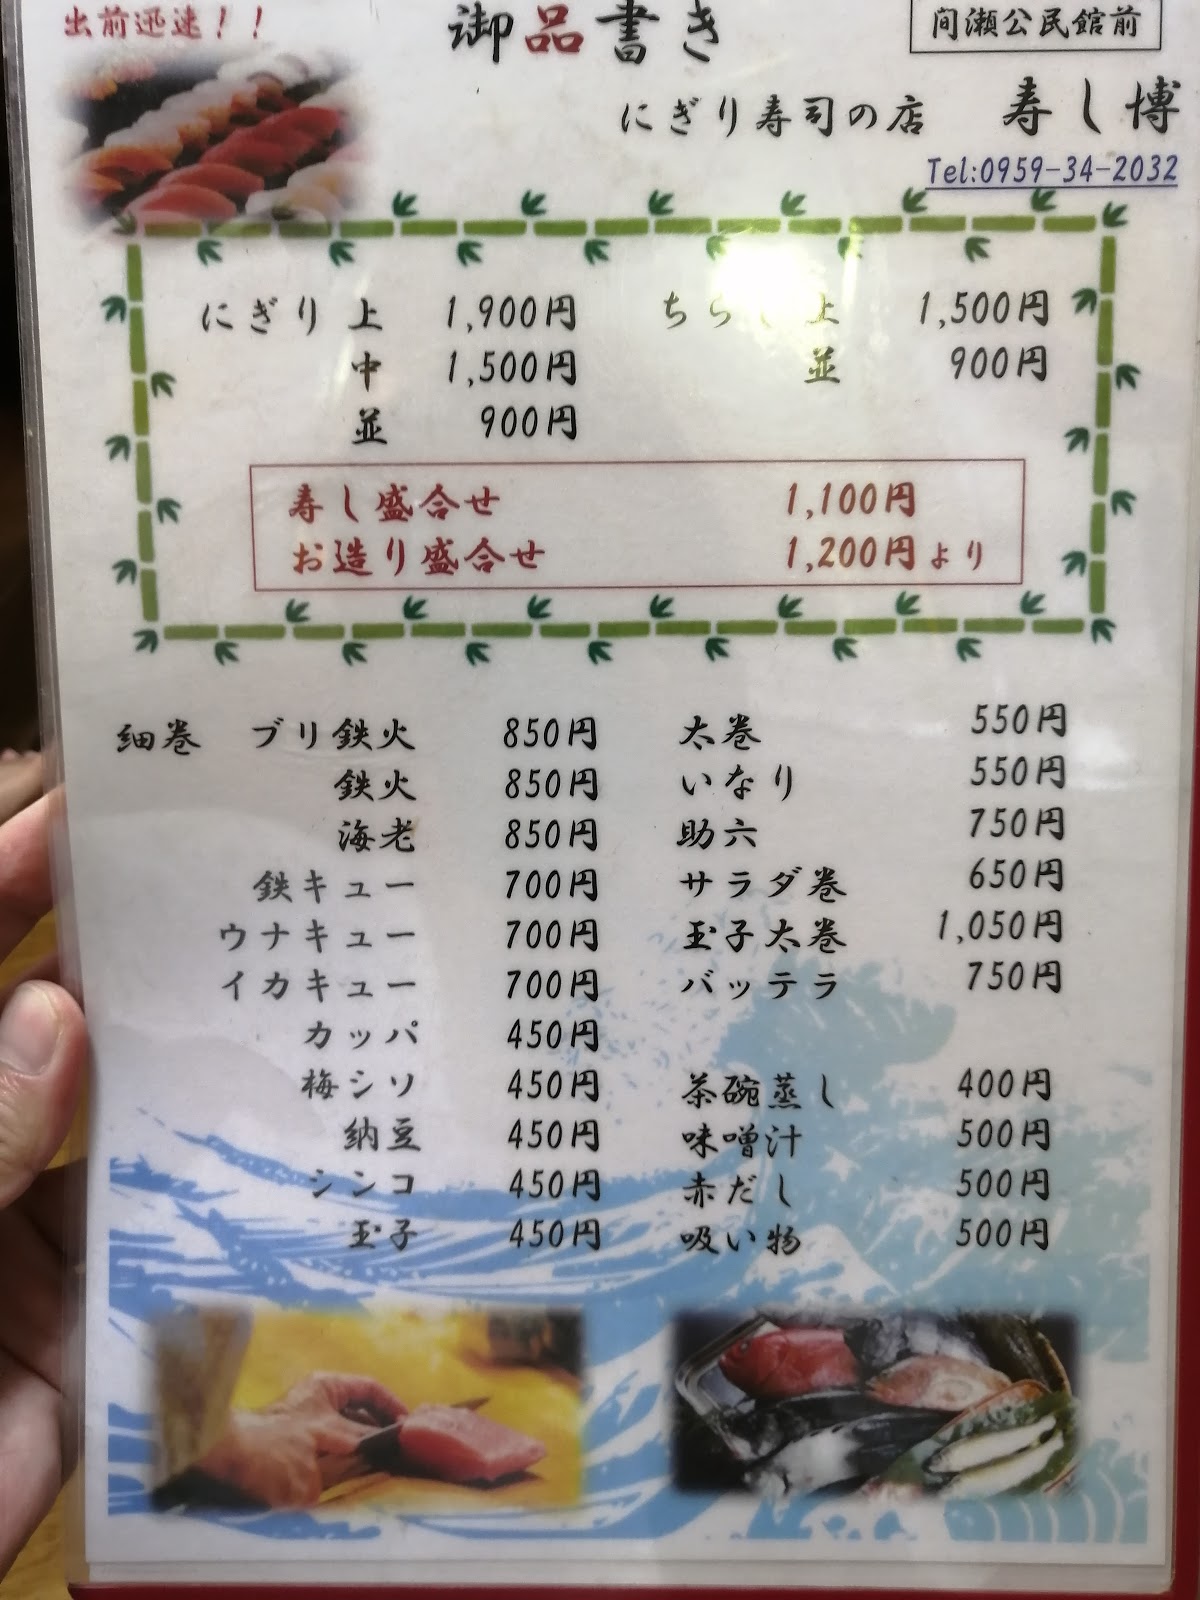 出前迅速！！
御品書き
间瀬公民館前
にぎり寿司の店 寿し博
Tel:0959-34-2032
にぎり 上 1,900円
中 1,500円
並 900円
ちらし 上 1,500円
並 900円
寿し盛合せ 1,100円
お造り盛合せ 1,200円より
細巻 ブリ鉄火 850円
鉄火 850円
海老 850円
鉄キュー 700円
ウナキュー 700円
イカキュー 700円
カッパ 450円
梅シソ 450円
納豆 450円
シンコ 450円
玉子 450円
太巻 550円
いなり 550円
助六 750円
サラダ巻 650円
玉子太巻 1,050円
バッテラ 750円
茶碗蒸し 400円
味噌汁 500円
赤だし 500円
吸い物 500円